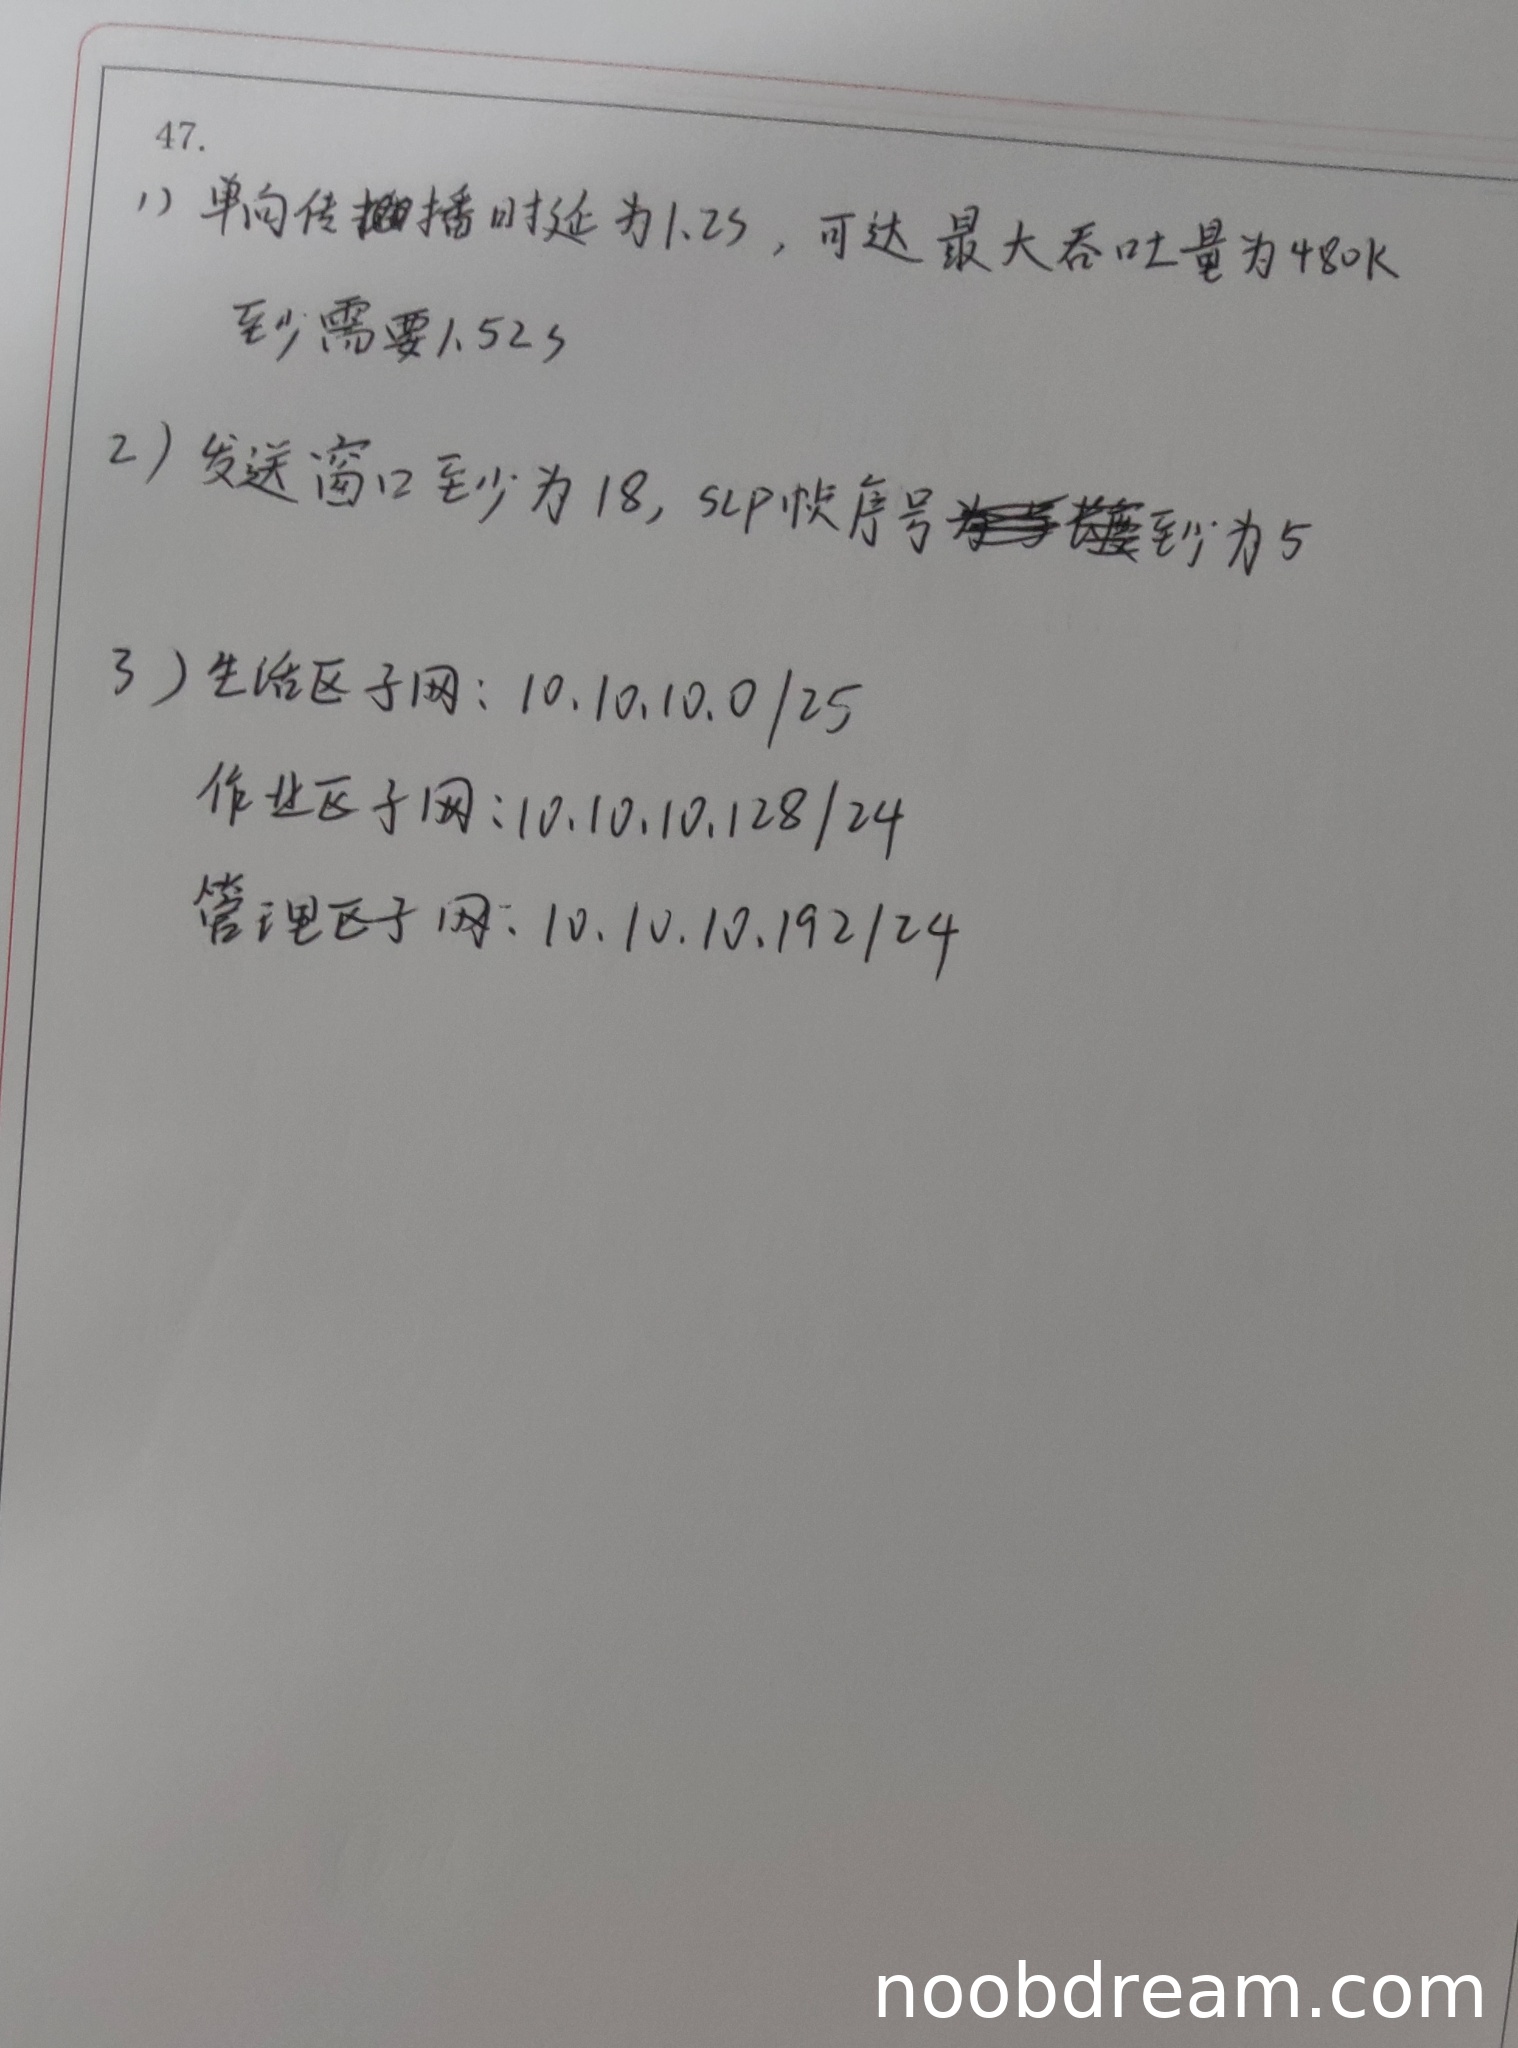 47.
1) 单向传播时延为1.2s，可达最大吞吐量为480K
至少需要1.52s
2) 发送窗口至少为18，SLP帧序号至少为5
3) 生活区子网：10.10.10.0/25
作业区子网：10.10.10.128/24
管理区子网：10.10.10.192/24
noobdream.com